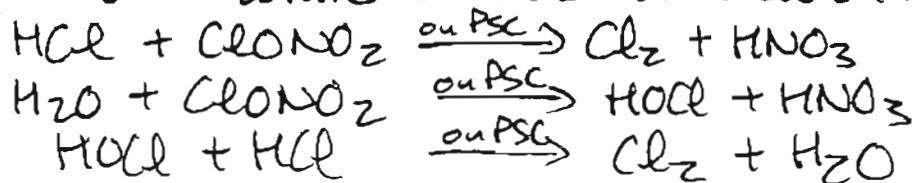 HCl + ClONO₂ on PSC → Cl₂ + HNO₃
H₂O + ClONO₂ on PSC → HOCl + HNO₃
HOCl + HCl on PSC → Cl₂ + H₂O